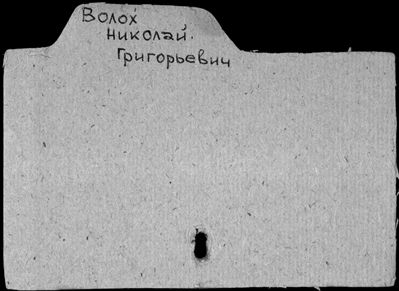 Волох
Николай.
Григорьевич